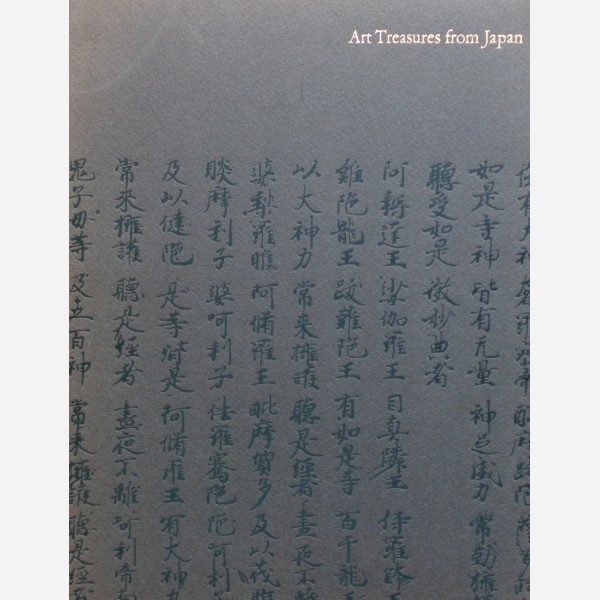 Art Treasures from Japan
如是等神 皆有无量 神足威力 常勤擁
聽受如是 微妙典者
阿耨達王 娑伽羅王 目真隣王 伊羅鉢王
難陀龍王 跋難陀王 有如是等 百千龍王
以大神力 常来擁護 聽是經者 晝夜不
婆稚羅睺 阿脩羅王 毗摩質多 及以茂脂
睒摩利子 波呵利子 佉羅騫陀
及以揵陀 是等皆是 阿脩羅王 有大神力
常來擁護 聽是經者 晝夜不離 呵利帝南
鬼子母等 及五百神 常来擁護 聽是經者